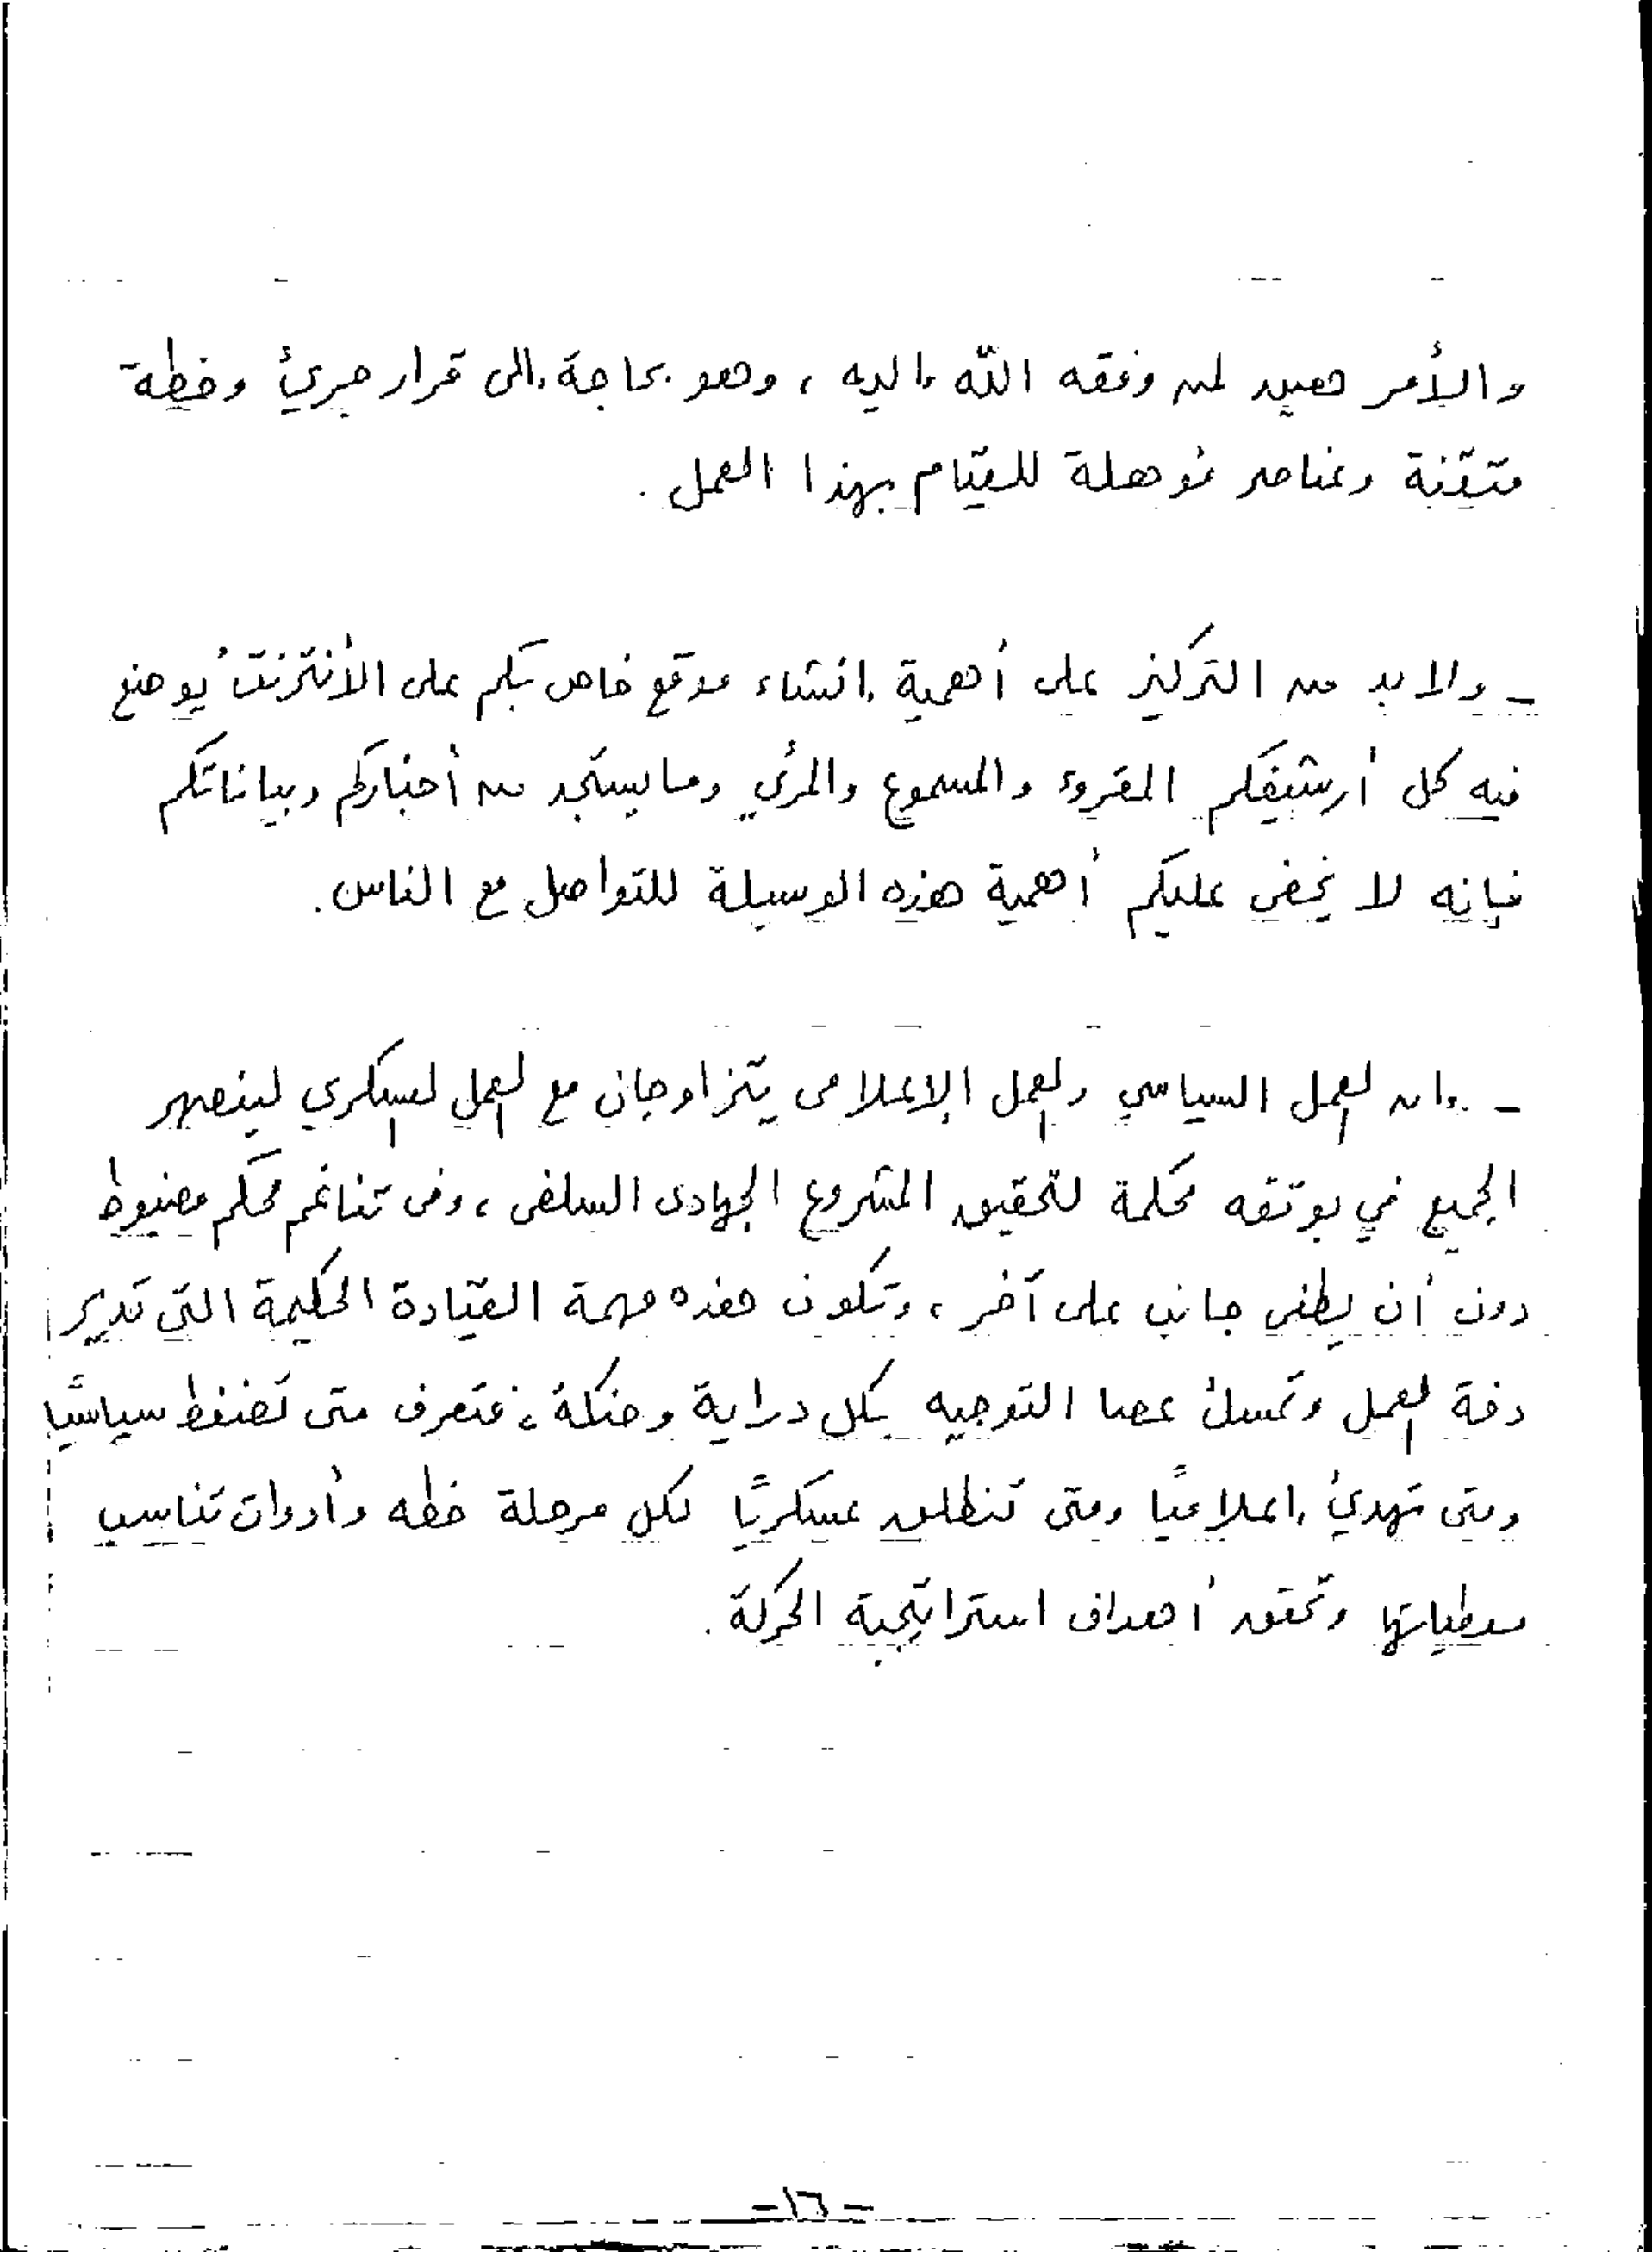 والأمر هين لمن وفقه الله إليه ، وهو بحاجة إلى قرار جريئ وخطة
متقنة وعناصر مؤهلة للقيام بهذا العمل .
- ولا بد من التركيز على أهمية إنشاء موقع خاص بكم على الأنترنت يُوضع
فيه كل أرشيفكم المقروء والمسموع والمرئي وما يستجد من أخباركم وبياناتكم
فإنه لا يخفى عليكم أهمية هذه الوسيلة للتواصل مع الناس .
- وإن العمل السياسي والعمل الإعلامى يتزاوجان مع العمل العسكري لينصهر
الجميع في بوتقه محكمة لتحقيق المشروع الجهادى السلفى ، وفى تناغم محكم مضبوط
دون أن يطغى جانب على آخر ، وتكون هذه مهمة القيادة الحكيمة التى تدير
دفة العمل وتمسك عصا التوجيه بكل دراية وحنكة ، فتعرف متى تضغط سياسيًا
ومتى تهدئ إعلاميًا ومتى تنطلق عسكريًا لكل مرحلة خطه وأدوات تناسب
معطياتها وتحقق أهداف استراتيجية الحركة .
-١٦-